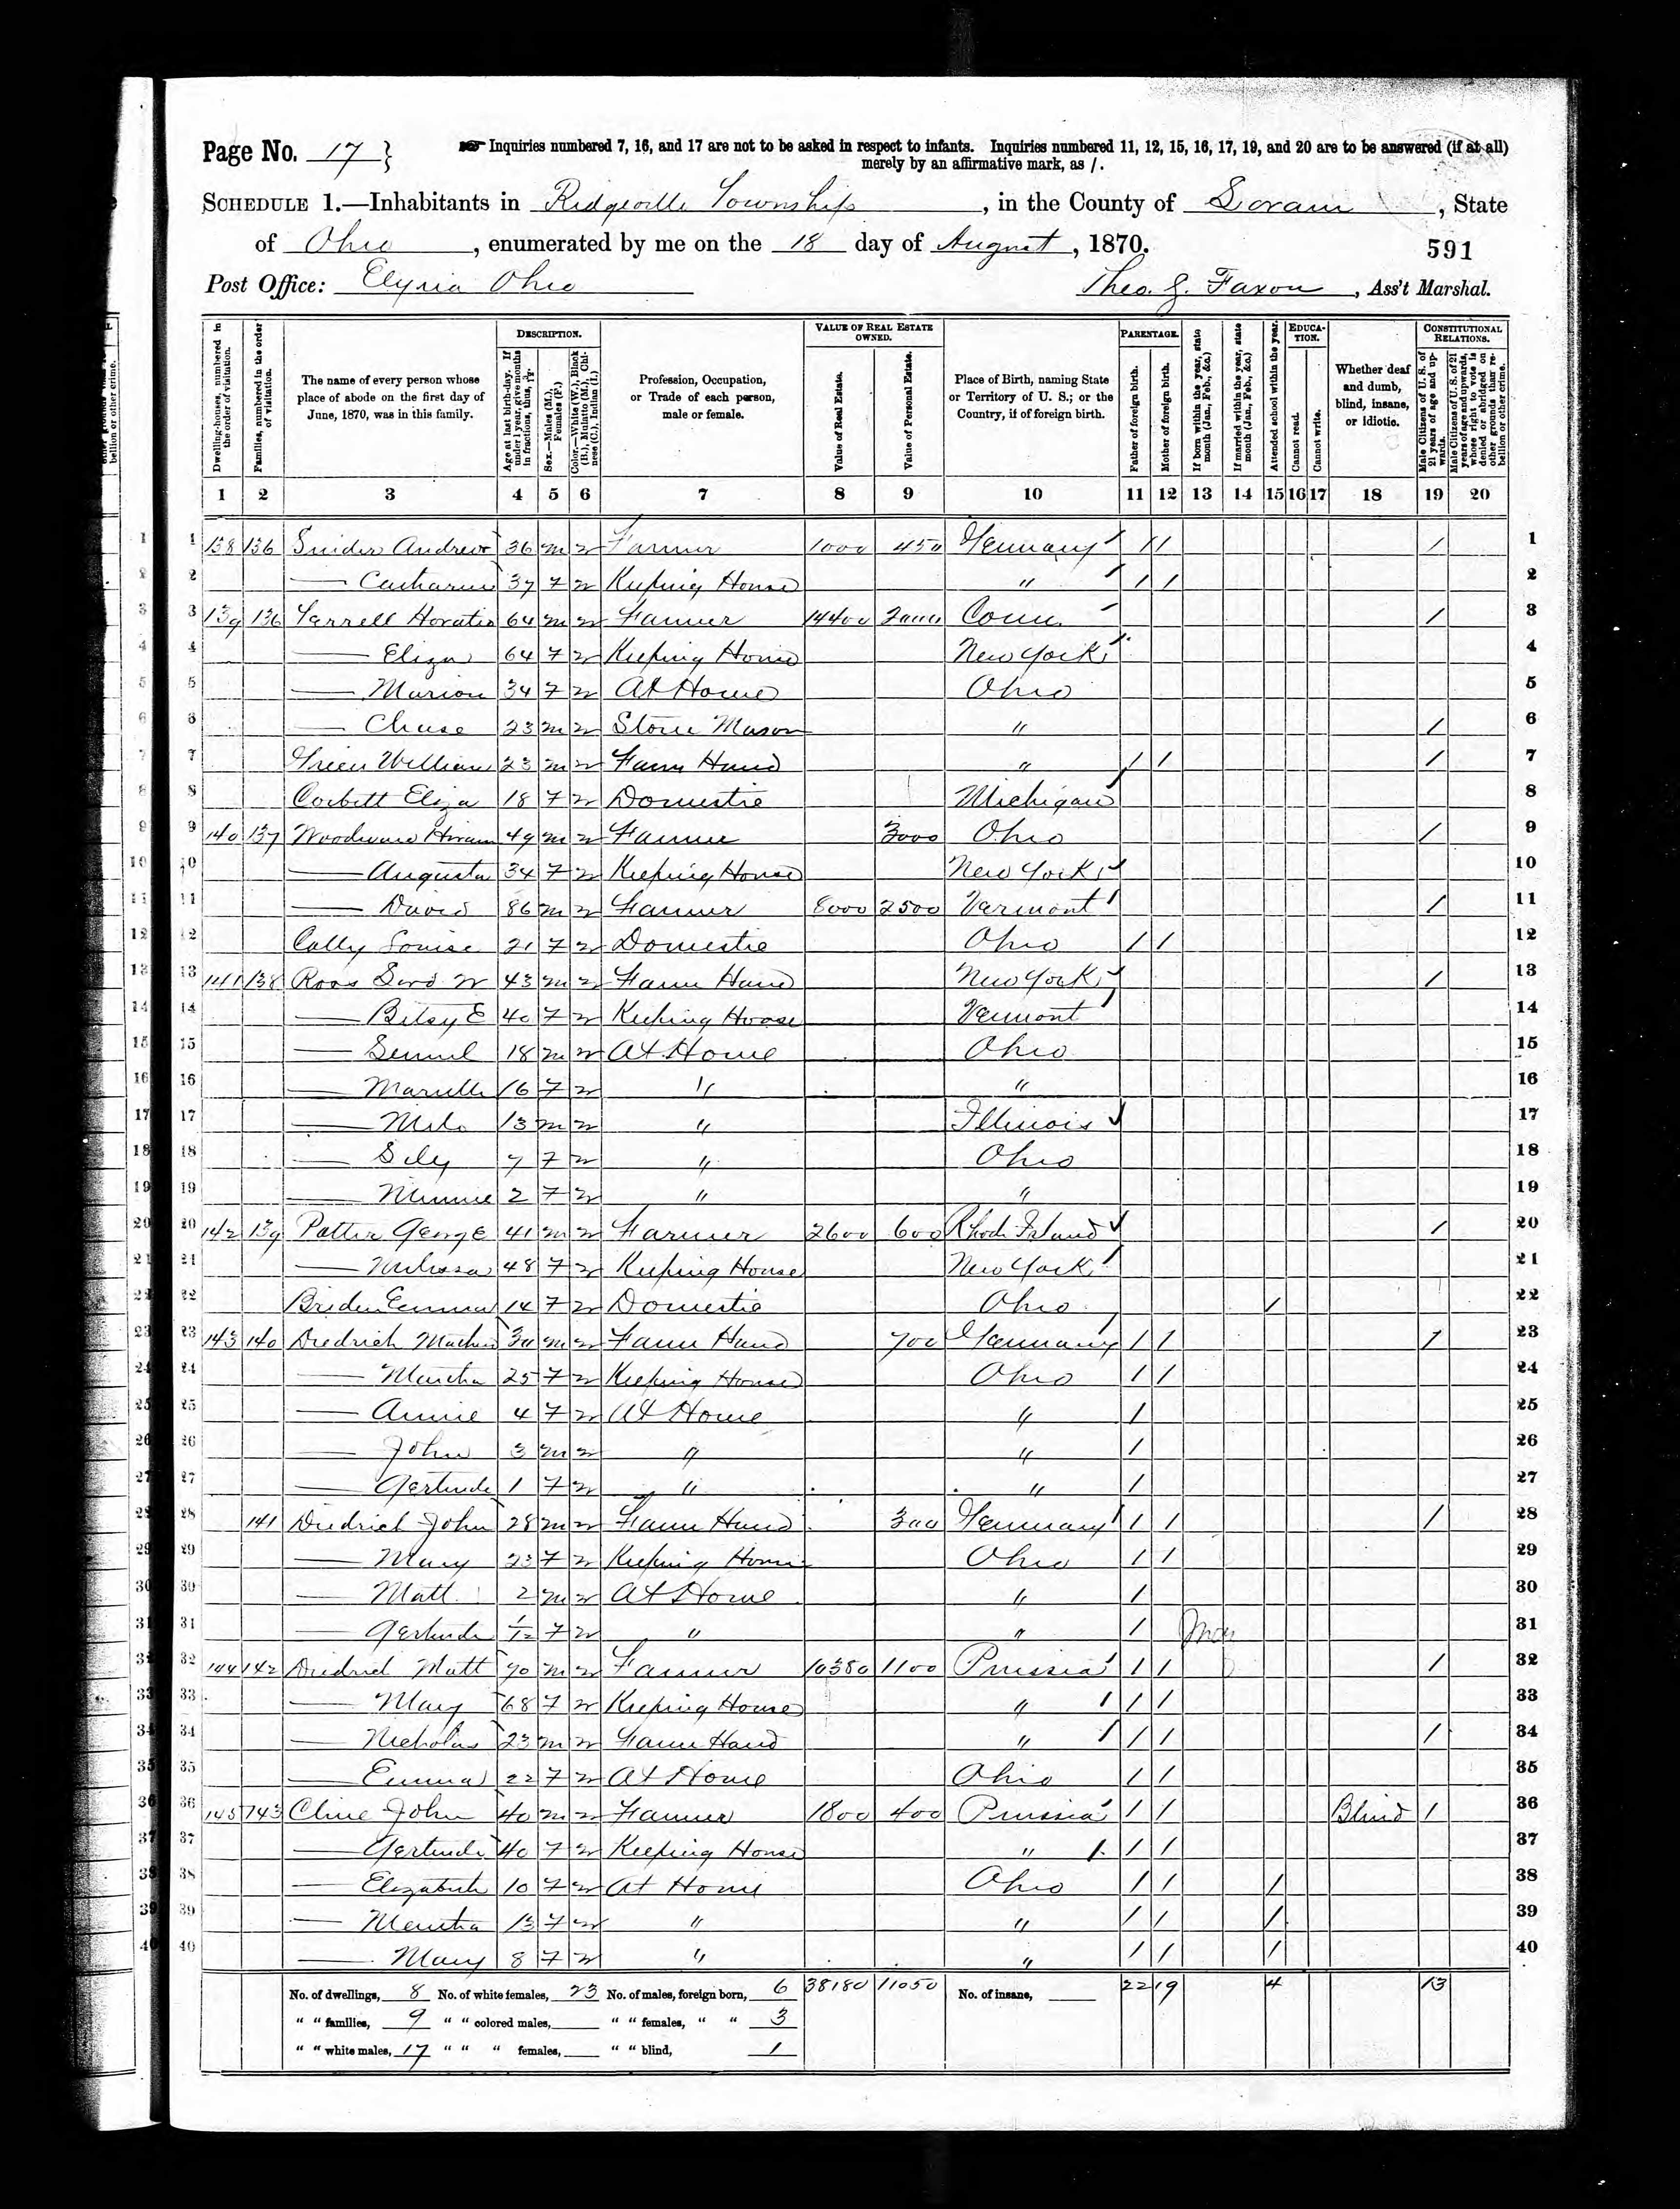 Page No. 17 }
Inquiries numbered 7, 16, and 17 are not to be asked in respect to infants. Inquiries numbered 11, 12, 15, 16, 17, 19, and 20 are to be answered (if at all)
merely by an affirmative mark, as /.
SCHEDULE 1.—Inhabitants in Ridgeville Township, in the County of Lorain, State
of Ohio, enumerated by me on the 18 day of August, 1870.
591
Post Office: Elyria Ohio
Theo. G. Faxon, Ass't Marshal.
Dwelling-houses, numbered in the order of visitation.
Families, numbered in the order of visitation.
The name of every person whose place of abode on the first day of June, 1870, was in this family.
DESCRIPTION.
Age at last birth-day. If under 1 year, give months in fractions, thus, 3/12
Sex.—Males (M.), Females (F.)
Color.—White (W.), Black (B.), Mulatto (M.), Chinese (C.), Indian (I.)
Profession, Occupation, or Trade of each person, male or female.
VALUE OF REAL ESTATE OWNED.
Value of Real Estate.
Value of Personal Estate.
Place of Birth, naming State or Territory of U. S.; or the Country, if of foreign birth.
PARENTAGE.
Father of foreign birth.
Mother of foreign birth.
If born within the year, state month (Jan., Feb., &c.)
If married within the year, state month (Jan., Feb., &c.)
Attended school within the year.
EDUCATION.
Cannot read.
Cannot write.
Whether deaf and dumb, blind, insane, or idiotic.
CONSTITUTIONAL RELATIONS.
Male Citizens of U. S. of 21 years of age and upwards.
Male Citizens of U. S. of 21 years of age and upwards, whose right to vote is denied or abridged on other grounds than rebellion or other crime.
1 2 3 4 5 6 7 8 9 10 11 12 13 14 15 16 17 18 19 20
1 138 136 Snider Andrew 36 m w Farmer 1000 450 Germany / / / 1
2 — Catharine 37 F w Keeping House " / / 2
3 139 136 Horatio 64 m w Farmer 14400 2000 Conn. / 3
4 — Eliza 64 F w Keeping House New York 4
5 — Marion 34 F w At Home Ohio 5
6 — Chase 23 m w Stone Mason " / 6
7 Green William 23 m w Farm Hand " / / / 7
8 Corbett Eliza 18 F w Domestic Michigan 8
9 140 137 Woodward Hiram 49 m w Farmer 3000 Ohio / 9
10 — Augusta 34 F w Keeping House New York 10
11 — David 86 m w Farmer 8000 2500 Vermont / 11
12 Louise 21 F w Domestic Ohio / / 12
13 141 138 43 m w Farm Hand New York / 13
14 — Betsy E 40 F w Keeping House Vermont 14
15 — 18 m w At Home Ohio 15
16 — 16 F w " " 16
17 — Milo 13 m w " Illinois 17
18 — 7 F w " Ohio 18
19 — Minnie 2 F w " " 19
20 142 139 Potter George 41 m w Farmer 2600 600 Rhode Island / 20
21 — Melissa 48 F w Keeping House New York 21
22 Emma 14 F w Domestic Ohio / 22
23 143 140 Diedrich 30 m w Farm Hand 700 Germany / / / 23
24 — Martha 25 F w Keeping House Ohio / / 24
25 — Annie 4 F w At Home " / 25
26 — John 3 m w " " / 26
27 — Gertrude 1 F w " " / 27
28 141 Diedrich John 28 m w Farm Hand 300 Germany / / / 28
29 — Mary 23 F w Keeping House Ohio / / 29
30 — Matt 2 m w At Home " / 30
31 — Gertrude 1/12 F w " " / 31
32 144 142 Diedrich Matt 70 m w Farmer 10380 1100 Prussia / / / 32
33 — Mary 68 F w Keeping House " / / 33
34 — Nicholas 23 m w Farm Hand " / / / 34
35 — Emma 22 F w At Home Ohio / / 35
36 145 143 Cline John 40 m w Farmer 1800 400 Prussia / / Blind / 36
37 — Gertrude 40 F w Keeping House " / / 37
38 — Elizabeth 10 F w At Home Ohio / / / 38
39 — Martha 13 F w " " / / / 39
40 — Mary 8 F w " " / / / 40
No. of dwellings, 8 No. of white females, 23 No. of males, foreign born, 6 38180 11050 No. of insane, 22 19 4 13
" " families, 9 " " colored males, " " females, " " 3
" " white males, 17 " " " females, " " blind, 1